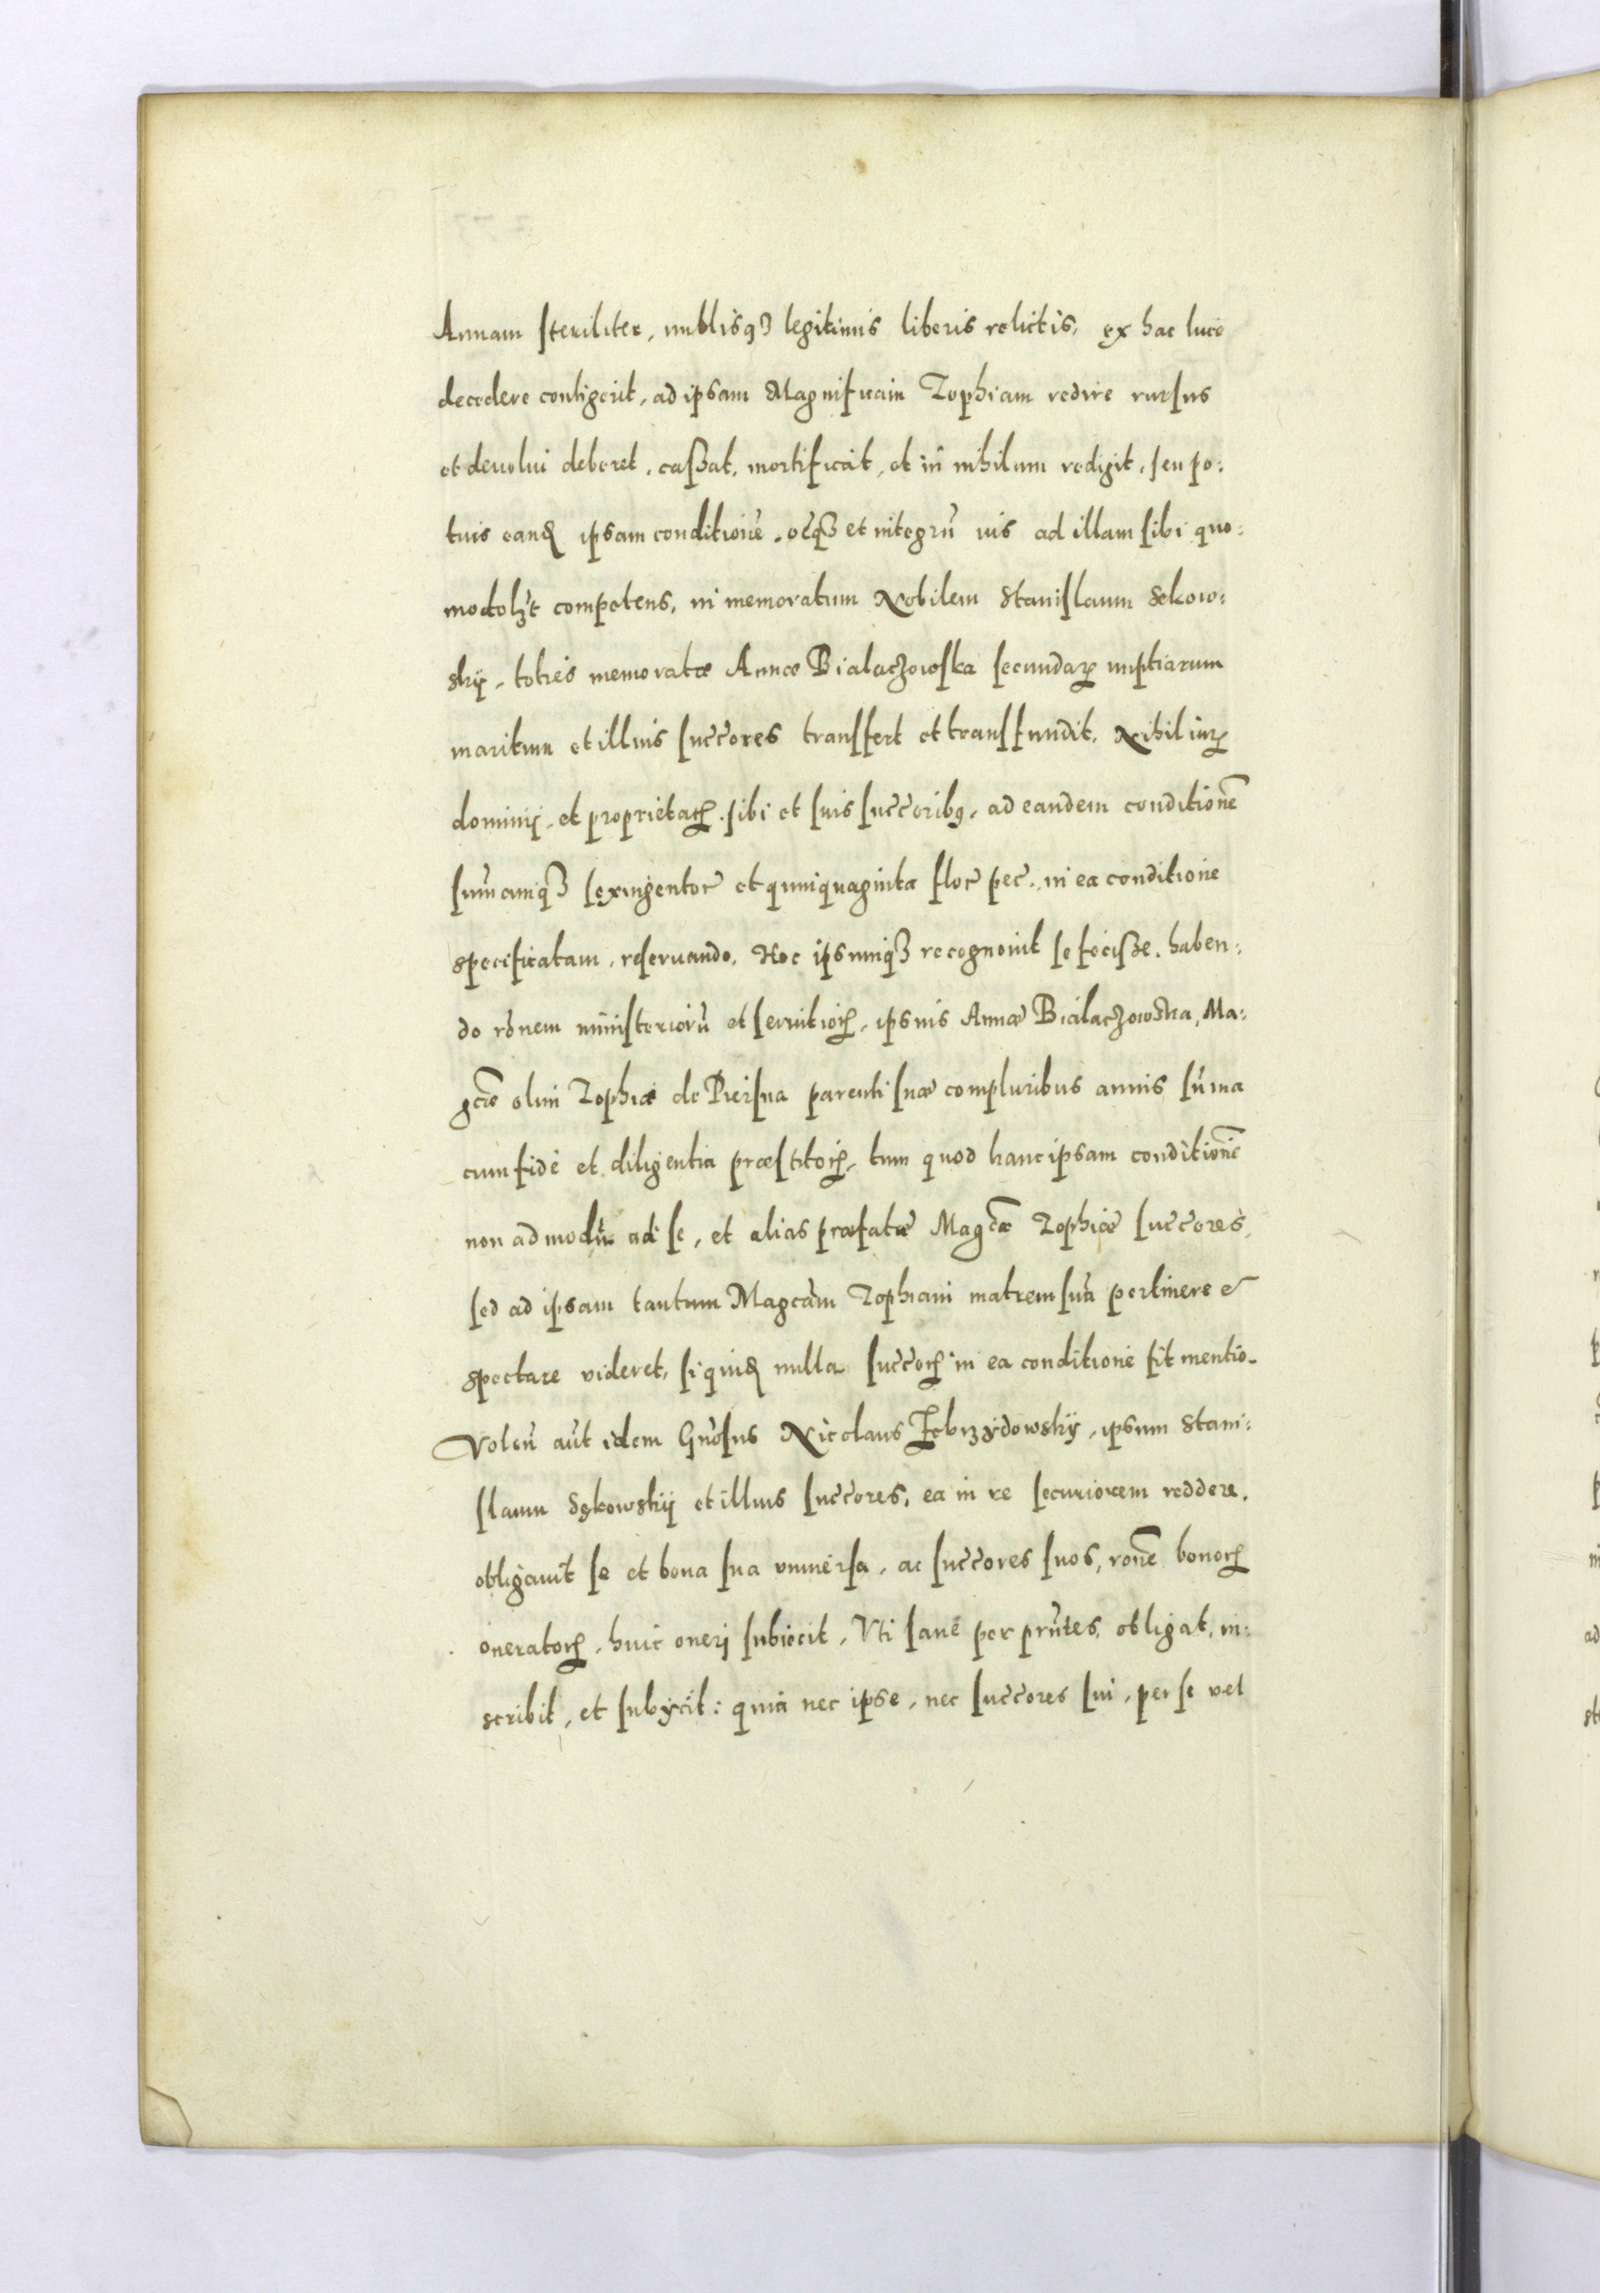 Annam steriliter, nullisq3 legitimis liberis relictis, ex hac luce
decedere contigerit, ad ipsam Magnificam Zophiam redire rursus
et deuolui deberet, cassat, mortificat, et in nihilum redigit, seu po:
tius eandē ipsam conditionē, oēq3 et integrū ius ad illam sibi quo:
modolꝫt competens, in memoratum Nobilem Stanislaum Sekow:
skij, toties memoratæ Annæ Bialaczowska secundarꝝ nuptiarum
maritum et illius succores transfert et transfundit, Nihil iurꝝ
dominij, et proprietatꝝ, sibi et suis succoribꝰ, ad eandem conditionē
sum̄amq3 sexingentor̄ et quinquaginta flor̄ pec̄, in ea conditione
specificatam, reseruando. Hoc ipsumq3 recognouit se fecisse, haben:
do rōnem ministeriorū et seruitiorꝝ, ipsius Annæ Bialaczowska, Ma:
gcæ olim Zophiæ de Piersna parenti suæ compluribus annis sūma
cum fide et diligentia præstitorꝝ, tum quod hanc ipsam conditionē
non admodū ad se, et alias præfatæ Magcæ Zophiæ succores,
sed ad ipsam tantum Magcam Zophiam matrem suā pertinere et
spectare videret, siquidē nulla succorꝝ in ea conditione fit mentio.
Volen̄ aūt idem Gn̄osus Nicolaus Zebrzydowskij, ipsum Stani:
slaum Sękowskij et illius succores, ea in re securiorem reddere,
obligauit se et bona sua vniuersa, ac succores suos, rōne bonorꝝ
oneratorꝝ, huic oneri subiecit, Vti sane per prn̄tes, obligat, in:
scribit, et subijcit: quia nec ipse, nec succores sui, per se vel